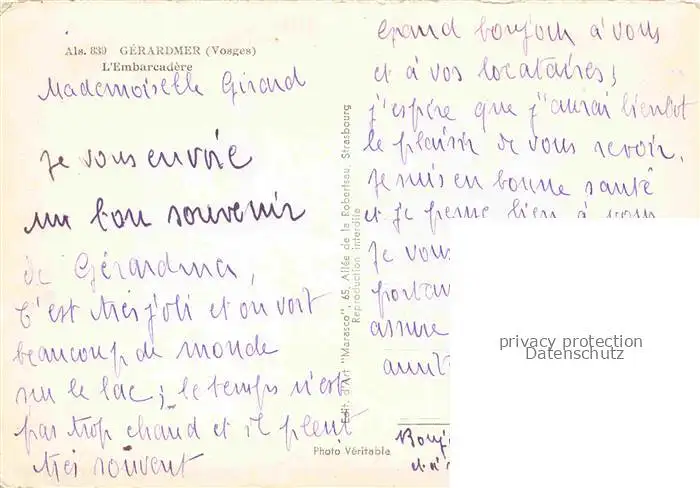 Als. 839 GÉRARDMER (Vosges)
L'Embarcadère
Mademoiselle Girard
je vous envoie
un bon souvenir
de Gérardmer,
C'est très joli et on voit
beaucoup de monde
sur le lac; le temps n'est
pas trop chaud et il pleut
très souvent
Edit. d'Art "Marasco", 65, Allée de la Robertsau, Strasbourg
Reproduction interdite
Photo Véritable
Grand bonjour à vous
et à vos locataires;
j'espère que j'aurai bientôt
le plaisir de vous revoir.
Je suis en bonne santé
et je pense bien à vous
Je vous
portar
assure
amit
Bonj
et n'
privacy protection
Datenschutz